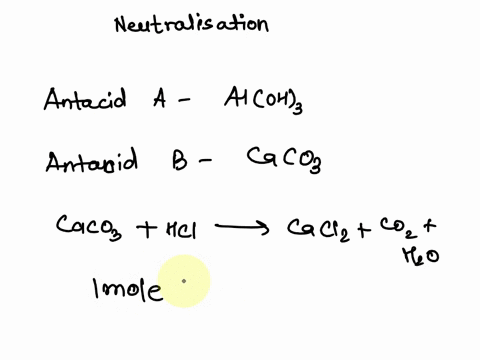 Neutralisation
Antacid A - Al(OH)3
Antacid B - CaCO3
CaCO3 + HCl → CaCl2 + CO2 +
H2O
1mole